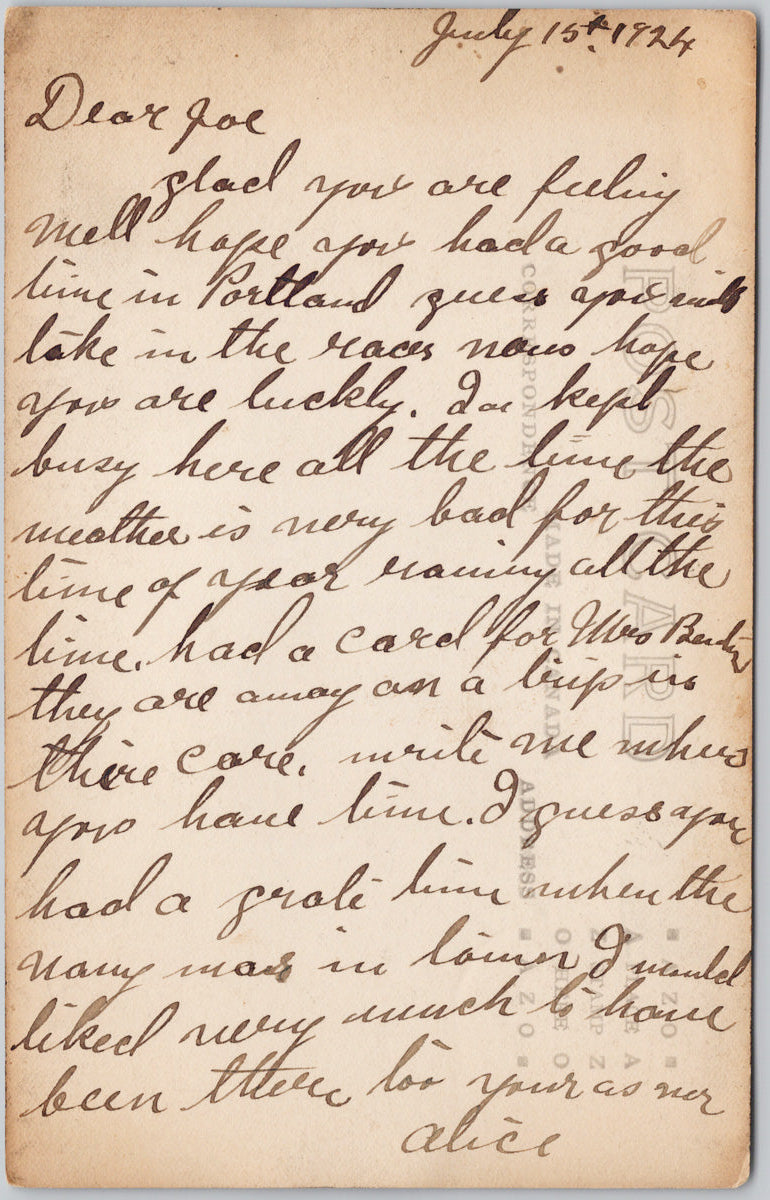 July 15th 1924
Dear Joe
glad you are feeling
well hope you had a good
time in Portland guess you will
take in the races now hope
you are luckly. I am kept
busy here all the time the
weather is very bad for this
time of year raining all the
time. had a card for Mrs
they are away on a trip in
there care. write me when
you have time. I guess you
had a grate time when the
navy was in town I would
liked very much to have
been there too your as ever
Alice
POST CARD
CORRESPONDENCE MADE IN CANADA ADDRESS
AZO
PLACE
STAMP
HERE
AZO